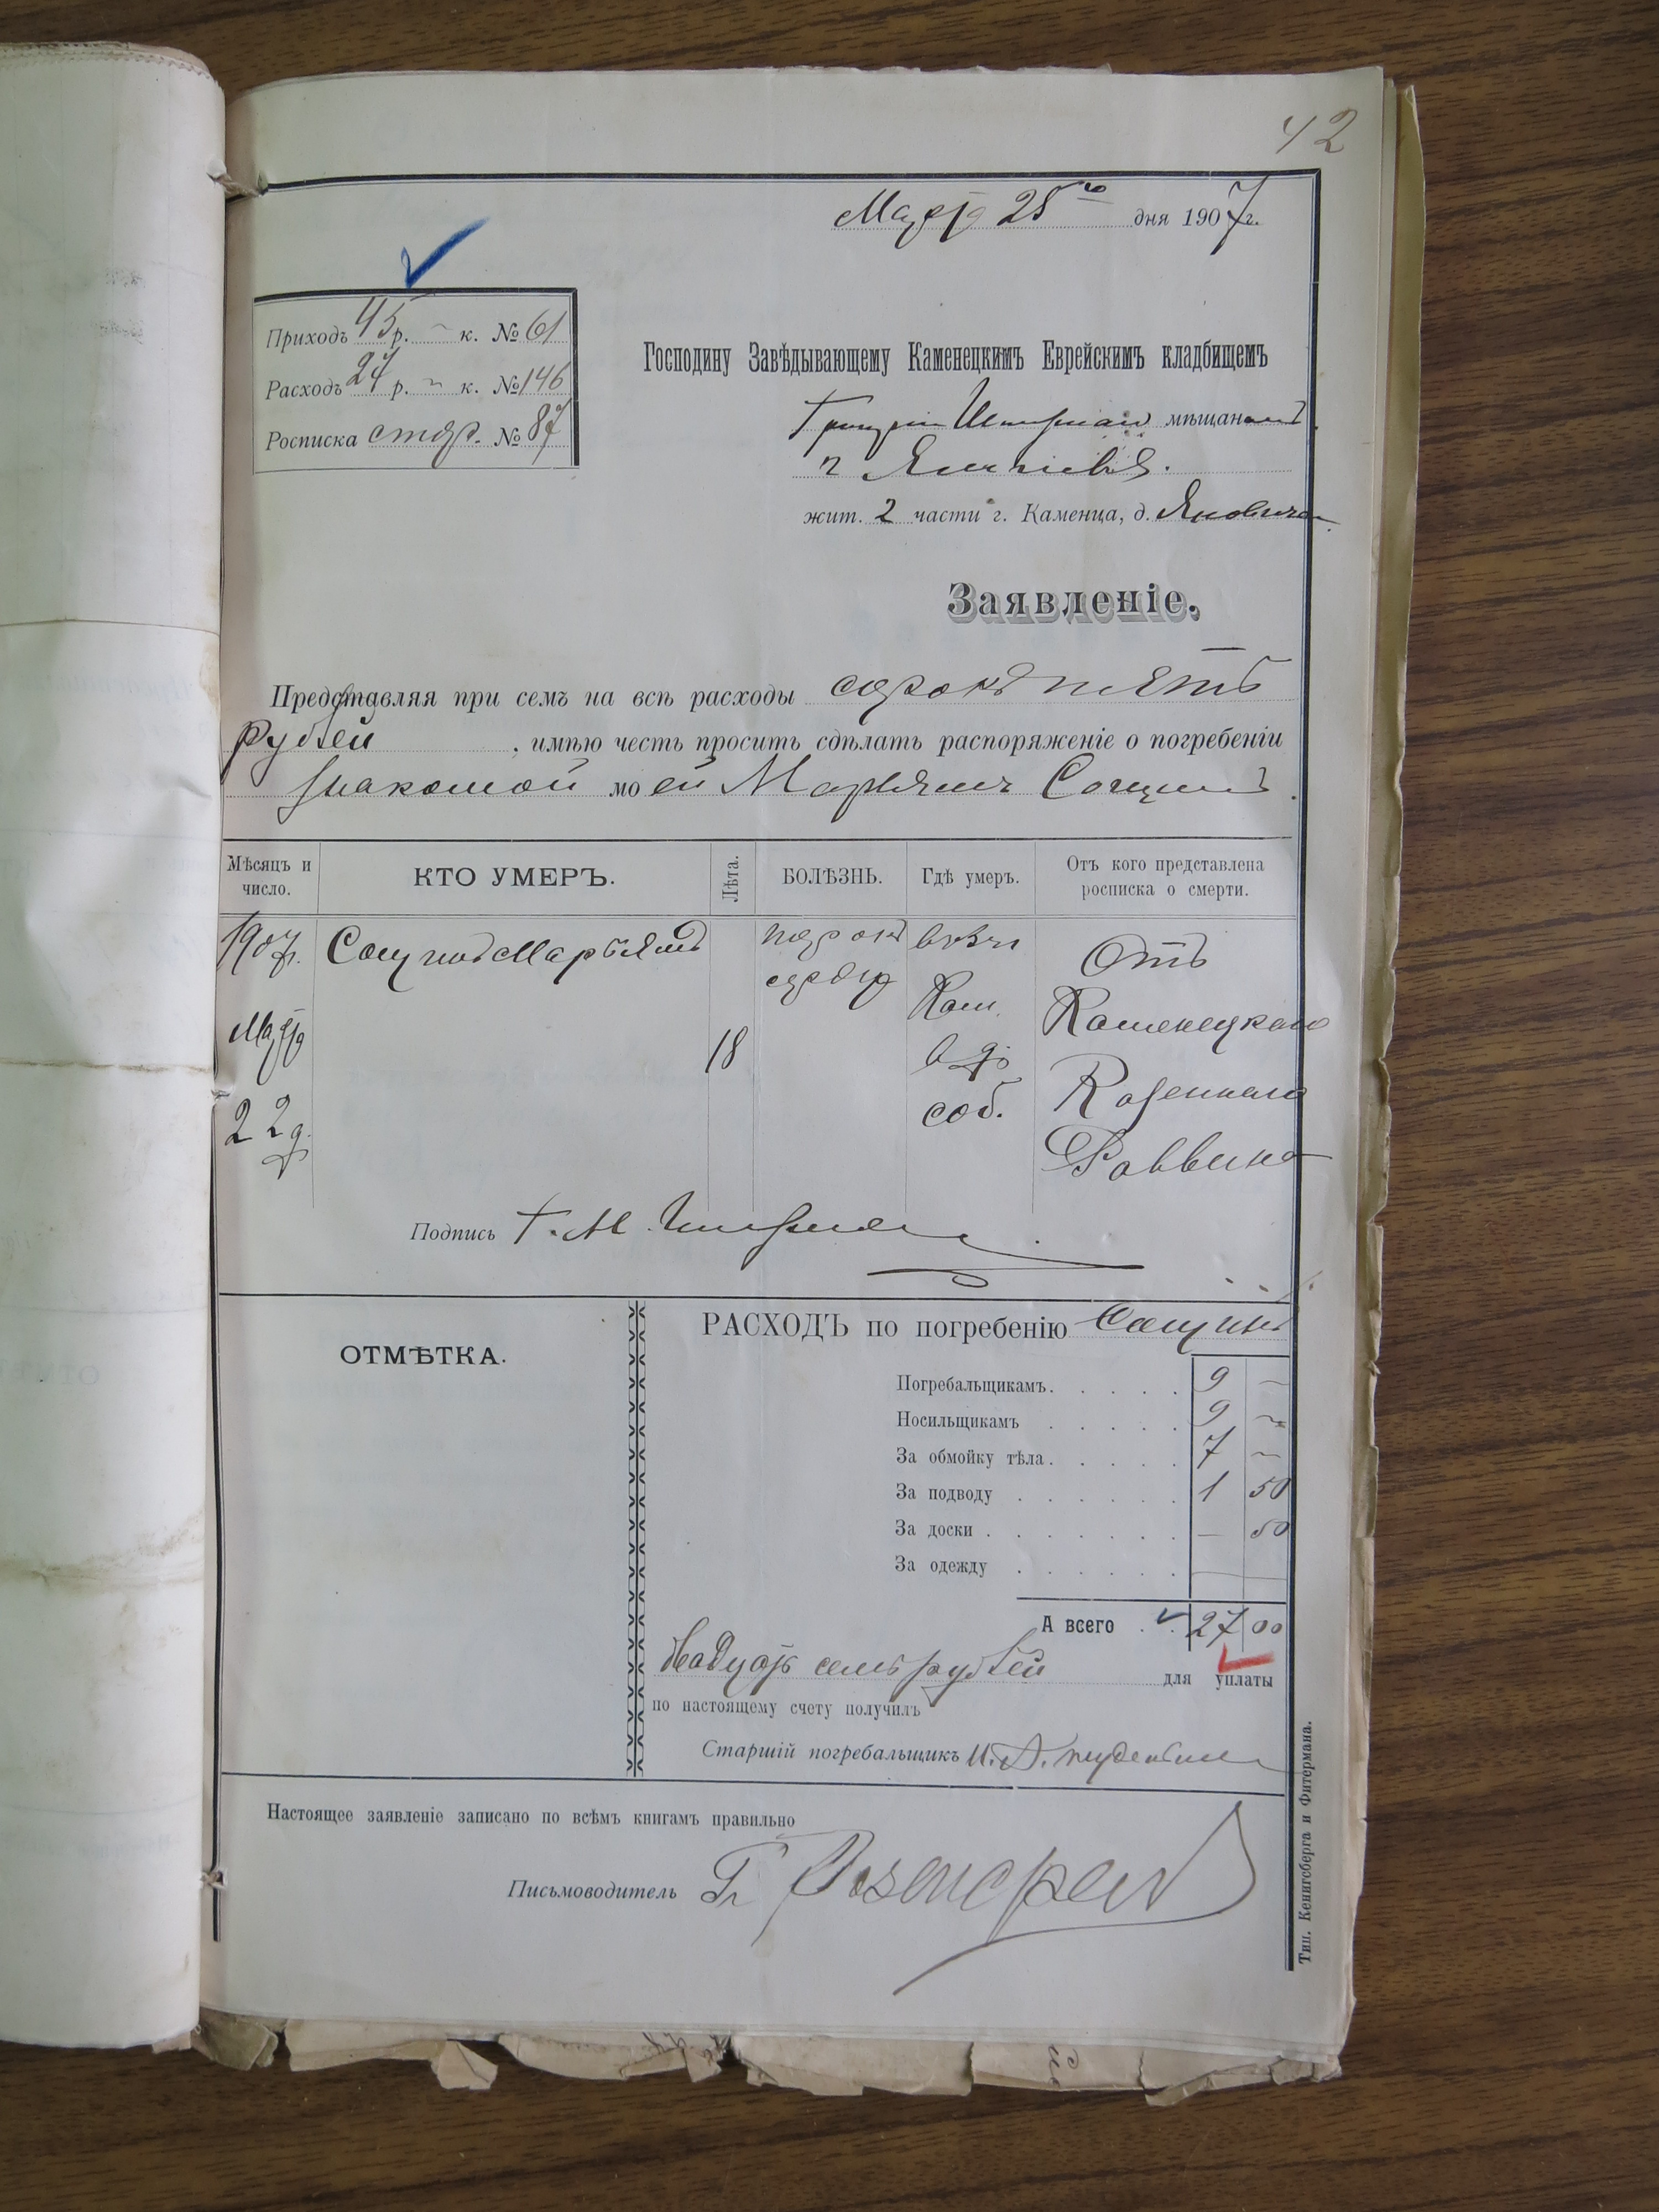 42
Марта 25го дня 1907 г.
Приходъ 45 р. ~ к. № 61
Расходъ 27 р. ~ к. № 146
Росписка стар. № 87
Господину Завѣдывающему Каменецкимъ Еврейскимъ кладбищемъ
мѣщан
г
жит. 2 части г. Каменца, д. Яновича
Заявленіе.
Представляя при семъ на всѣ расходы сорокъ пять
рублей, имѣю честь просить сдѣлать распоряженіе о погребеніи
знакомой моей Марьямъ
Мѣсяцъ и число.
КТО УМЕРЪ.
Лѣта.
БОЛѢЗНЬ.
Гдѣ умеръ.
Отъ кого представлена росписка о смерти.
1907 г.
Марта
22 д.
Марьямъ
18
порокъ
сердца
Кам.
в д.
соб.
Отъ
Каменецкаго
Казеннаго
Раввина
Подпись Г. М.
ОТМѢТКА.
РАСХОДЪ по погребенію
Погребальщикамъ. . . . . 9 ~
Носильщикамъ . . . . . 9 ~
За обмойку тѣла. . . . . 7 ~
За подводу . . . . . . 1 50
За доски . . . . . . . — 50
За одежду . . . . . . — —
А всего . . 27 00
двадцать семь рублей для уплаты
по настоящему счету получилъ
Старшій погребальщикъ
Настоящее заявленіе записано по всѣмъ книгамъ правильно
Письмоводитель
Тип. Кенигсберга и Фитермана.